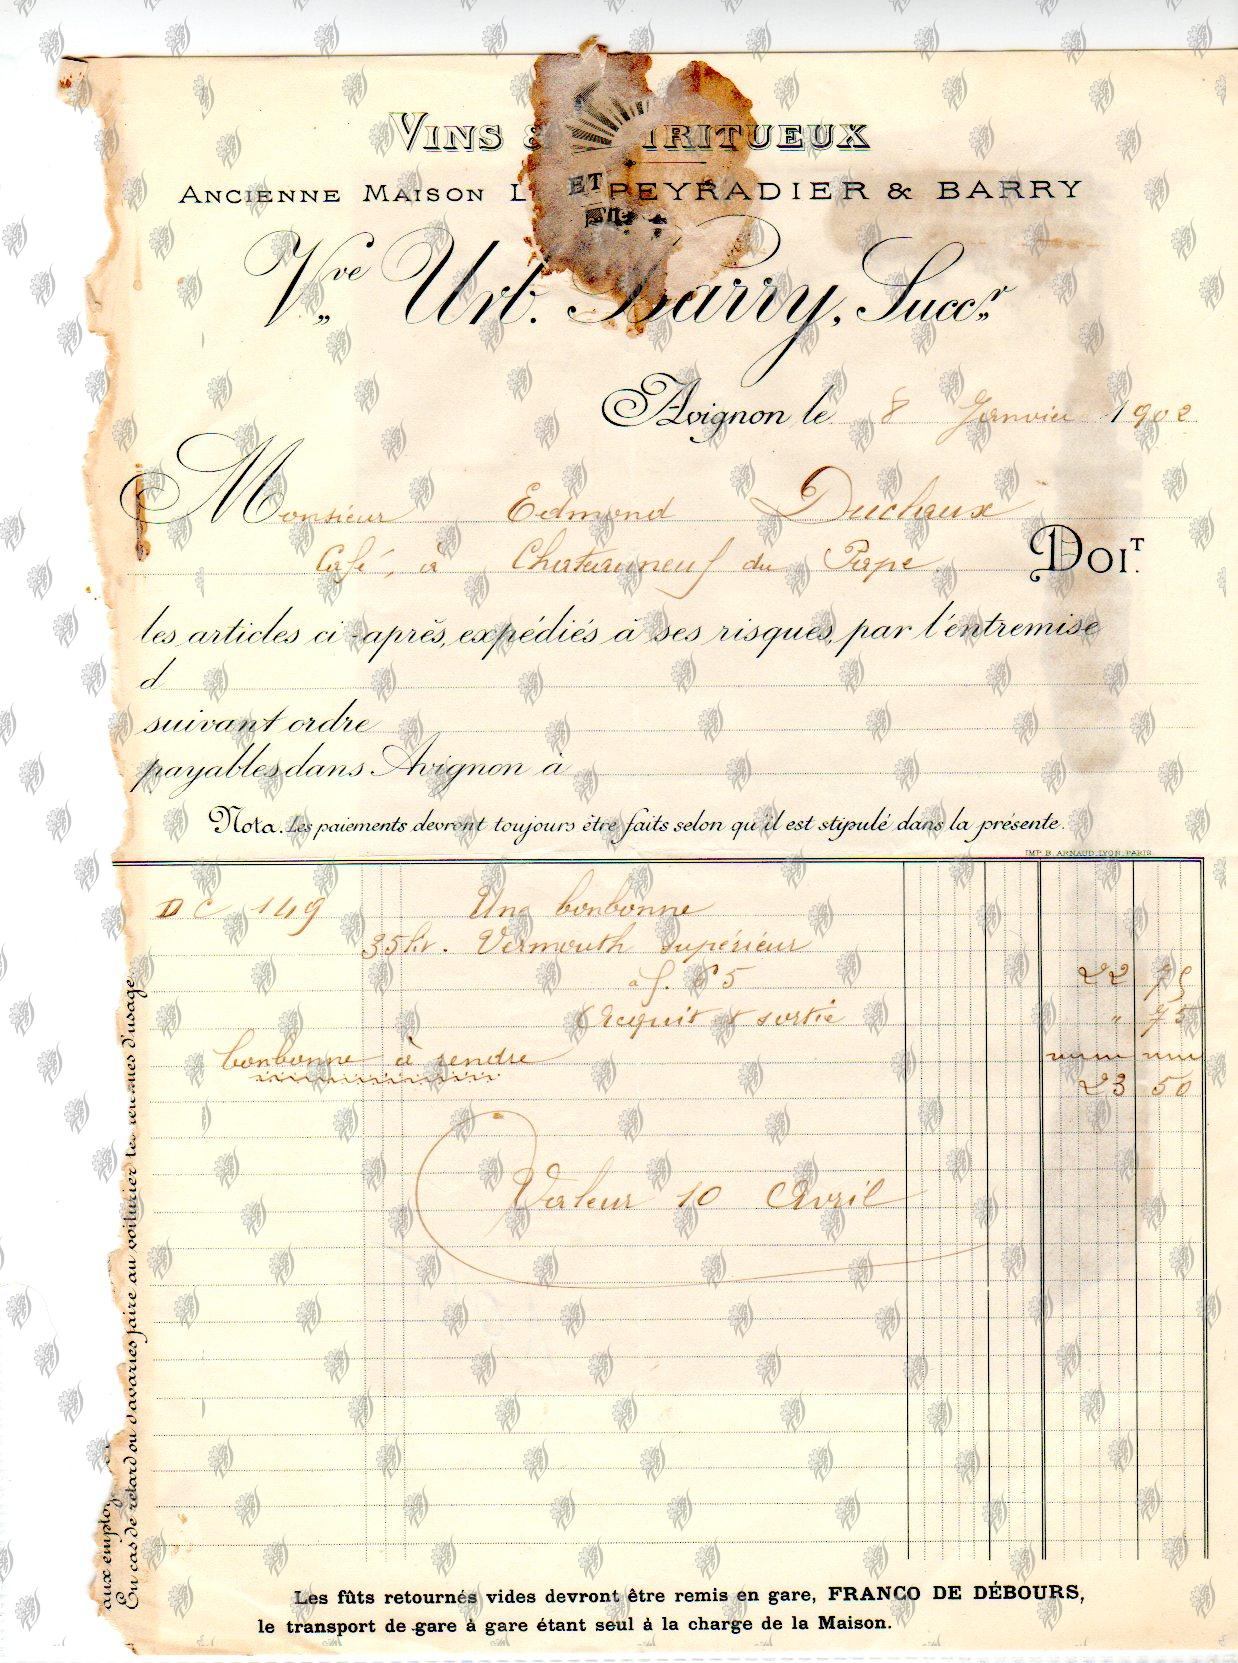 VINS & SPIRITUEUX
ANCIENNE MAISON PEYRADIER & BARRY
ET
Vve Urb. Barry, Succr
Avignon le 8 Janvier 1902
Monsieur Edmond Duchaux
Café, à Chateauneuf du Pape DOIT.
les articles ci-après, expédiés à ses risques, par l'entremise
d
suivant ordre
payables dans Avignon à
Nota. Les paiements devront toujours être faits selon qu'il est stipulé dans la présente.
IMP. B. ARNAUD, LYON, PARIS
DC 149 Une bonbonne
35 lit. Vermouth supérieur
à f. 65 22 75
Acquit & sortie " 75
bonbonne à rendre
23 50
Valeur 10 Avril
aux emplo
En cas de retard ou d'avaries faire au voiturier les réserves d'usage.
Les fûts retournés vides devront être remis en gare, FRANCO DE DÉBOURS,
le transport de gare à gare étant seul à la charge de la Maison.